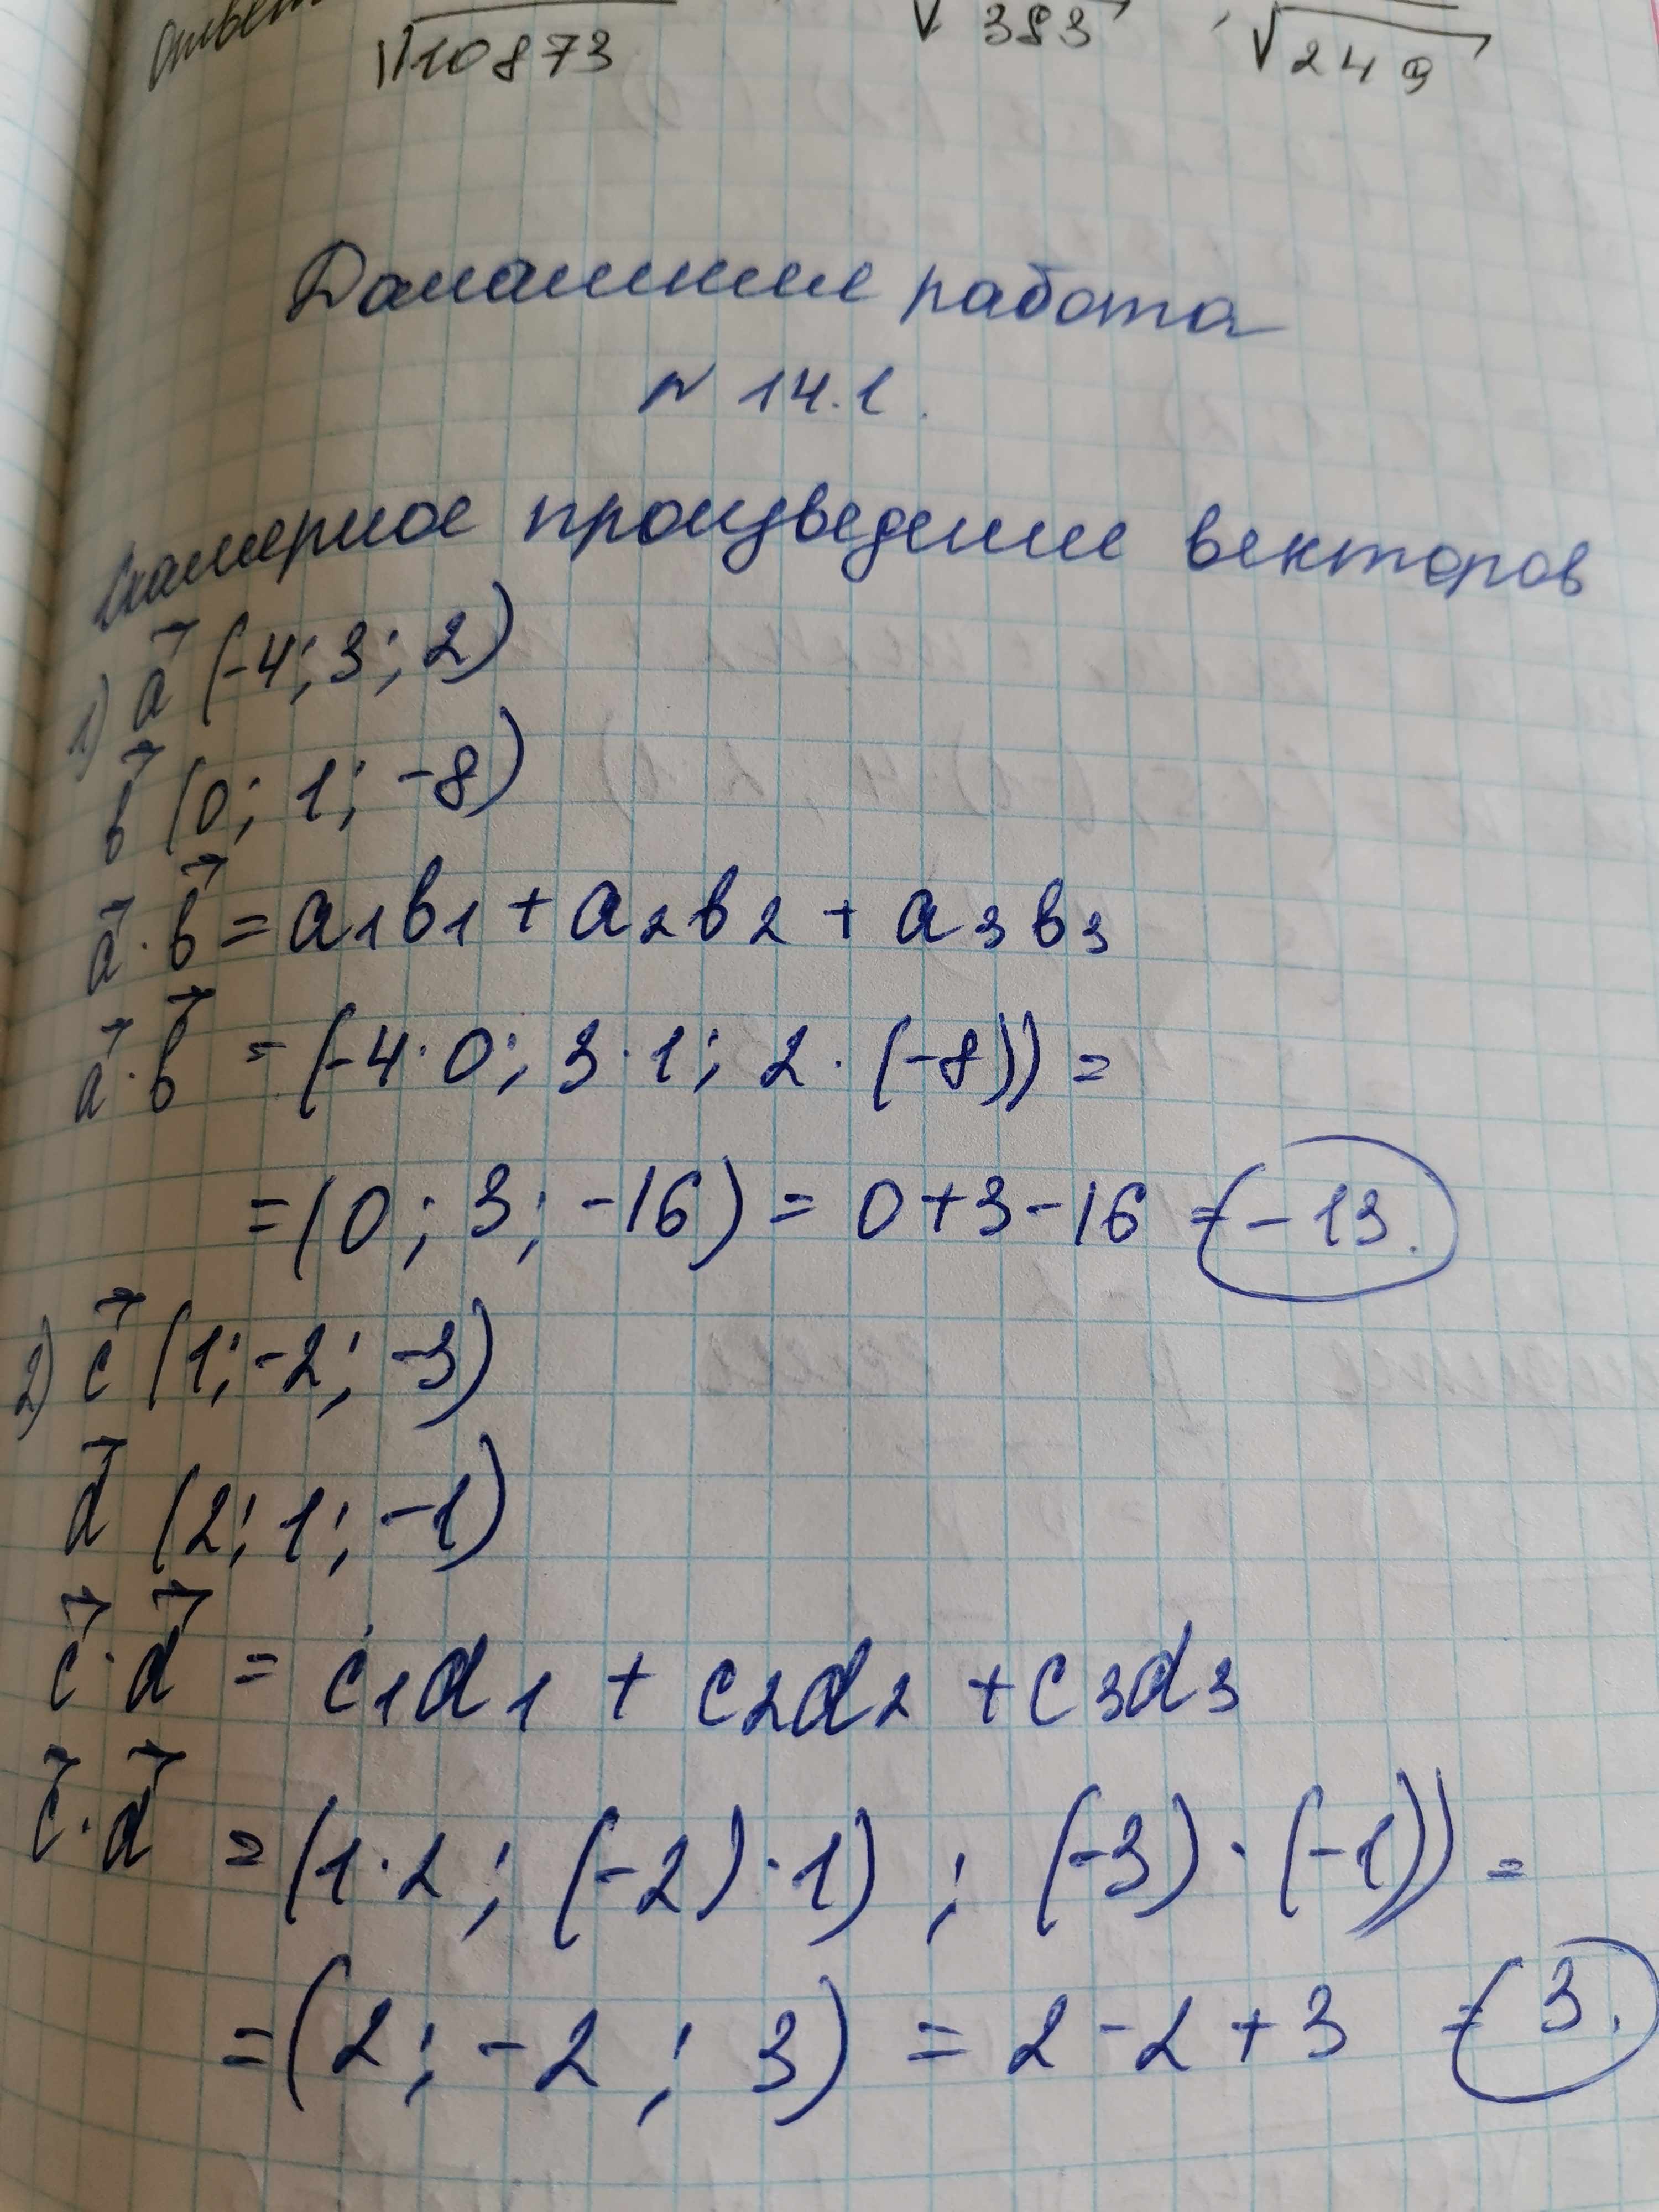 Ответ
√10873 √383 , √249
Домашнее работа
№ 14.1.
Скалерное произведение векторов
1) a⃗ (-4; 3; 2)
b⃗ (0; 1; -8)
a⃗ · b⃗ = a₁b₁ + a₂b₂ + a₃b₃
a⃗ · b⃗ = (-4 · 0; 3 · 1; 2 · (-8)) =
= (0; 3; -16) = 0 + 3 - 16 = -13.
2) c⃗ (1; -2; -3)
d⃗ (2; 1; -1)
c⃗ · d⃗ = c₁d₁ + c₂d₂ + c₃d₃
c⃗ · d⃗ = (1 · 2; (-2) · 1) ; (-3) · (-1)) =
= (2; -2; 3) = 2 - 2 + 3 = 3.